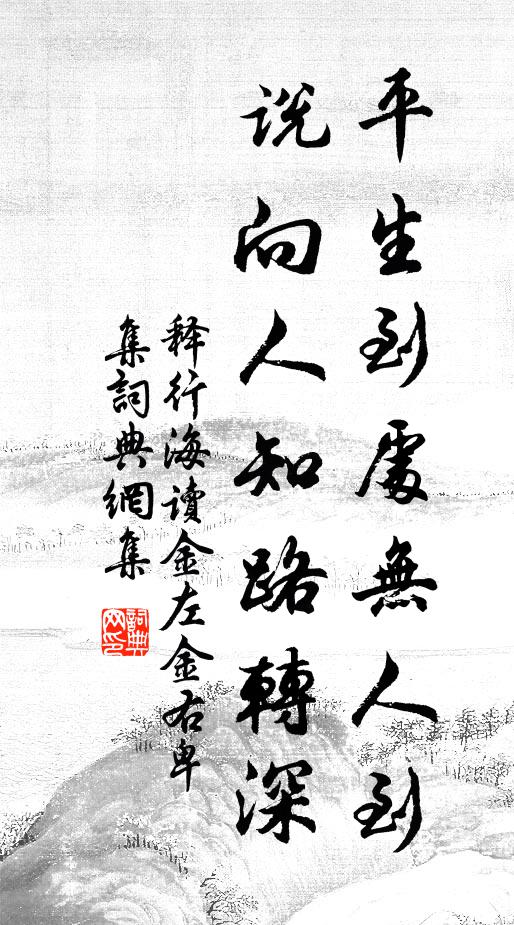 平生到處無人到
說向人知路轉深
釋行海讀金左金右卑
集詞典網集
詞典网印